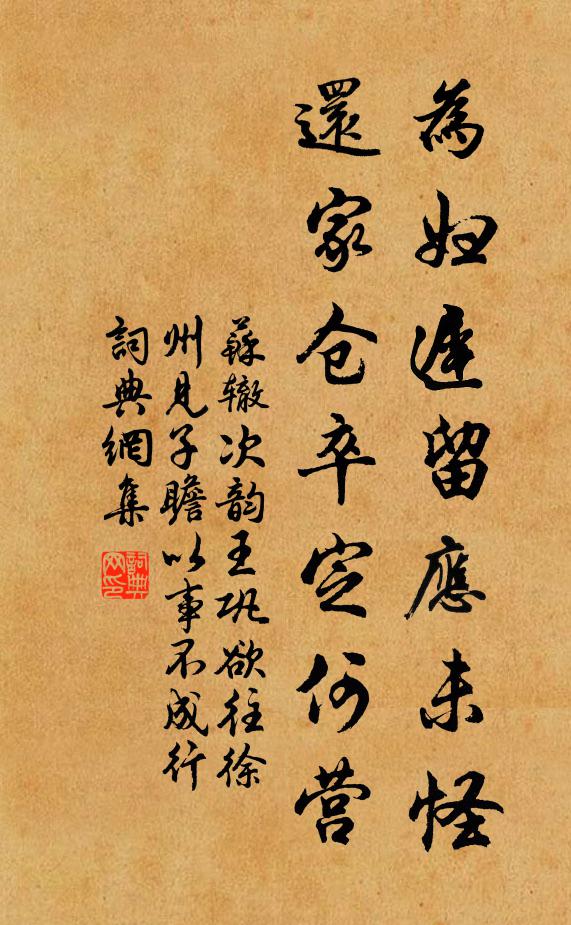 為妇遲留應未怪
還家仓卒定何营
蘇辙次韵王巩欲往徐
州見子瞻以事不成行
詞典網集
詞典
网印